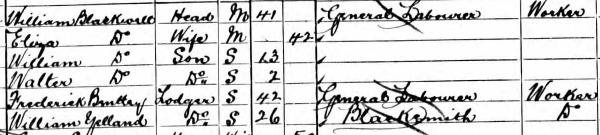 William Blackwell Head M 41 General Labourer Worker
Eliza Do Wife M 42
William Do Son S 13
Walter Do Do S 2
Frederick Lodger S 42 General Labourer Worker
William Yelland Do S 26 Blacksmith Do